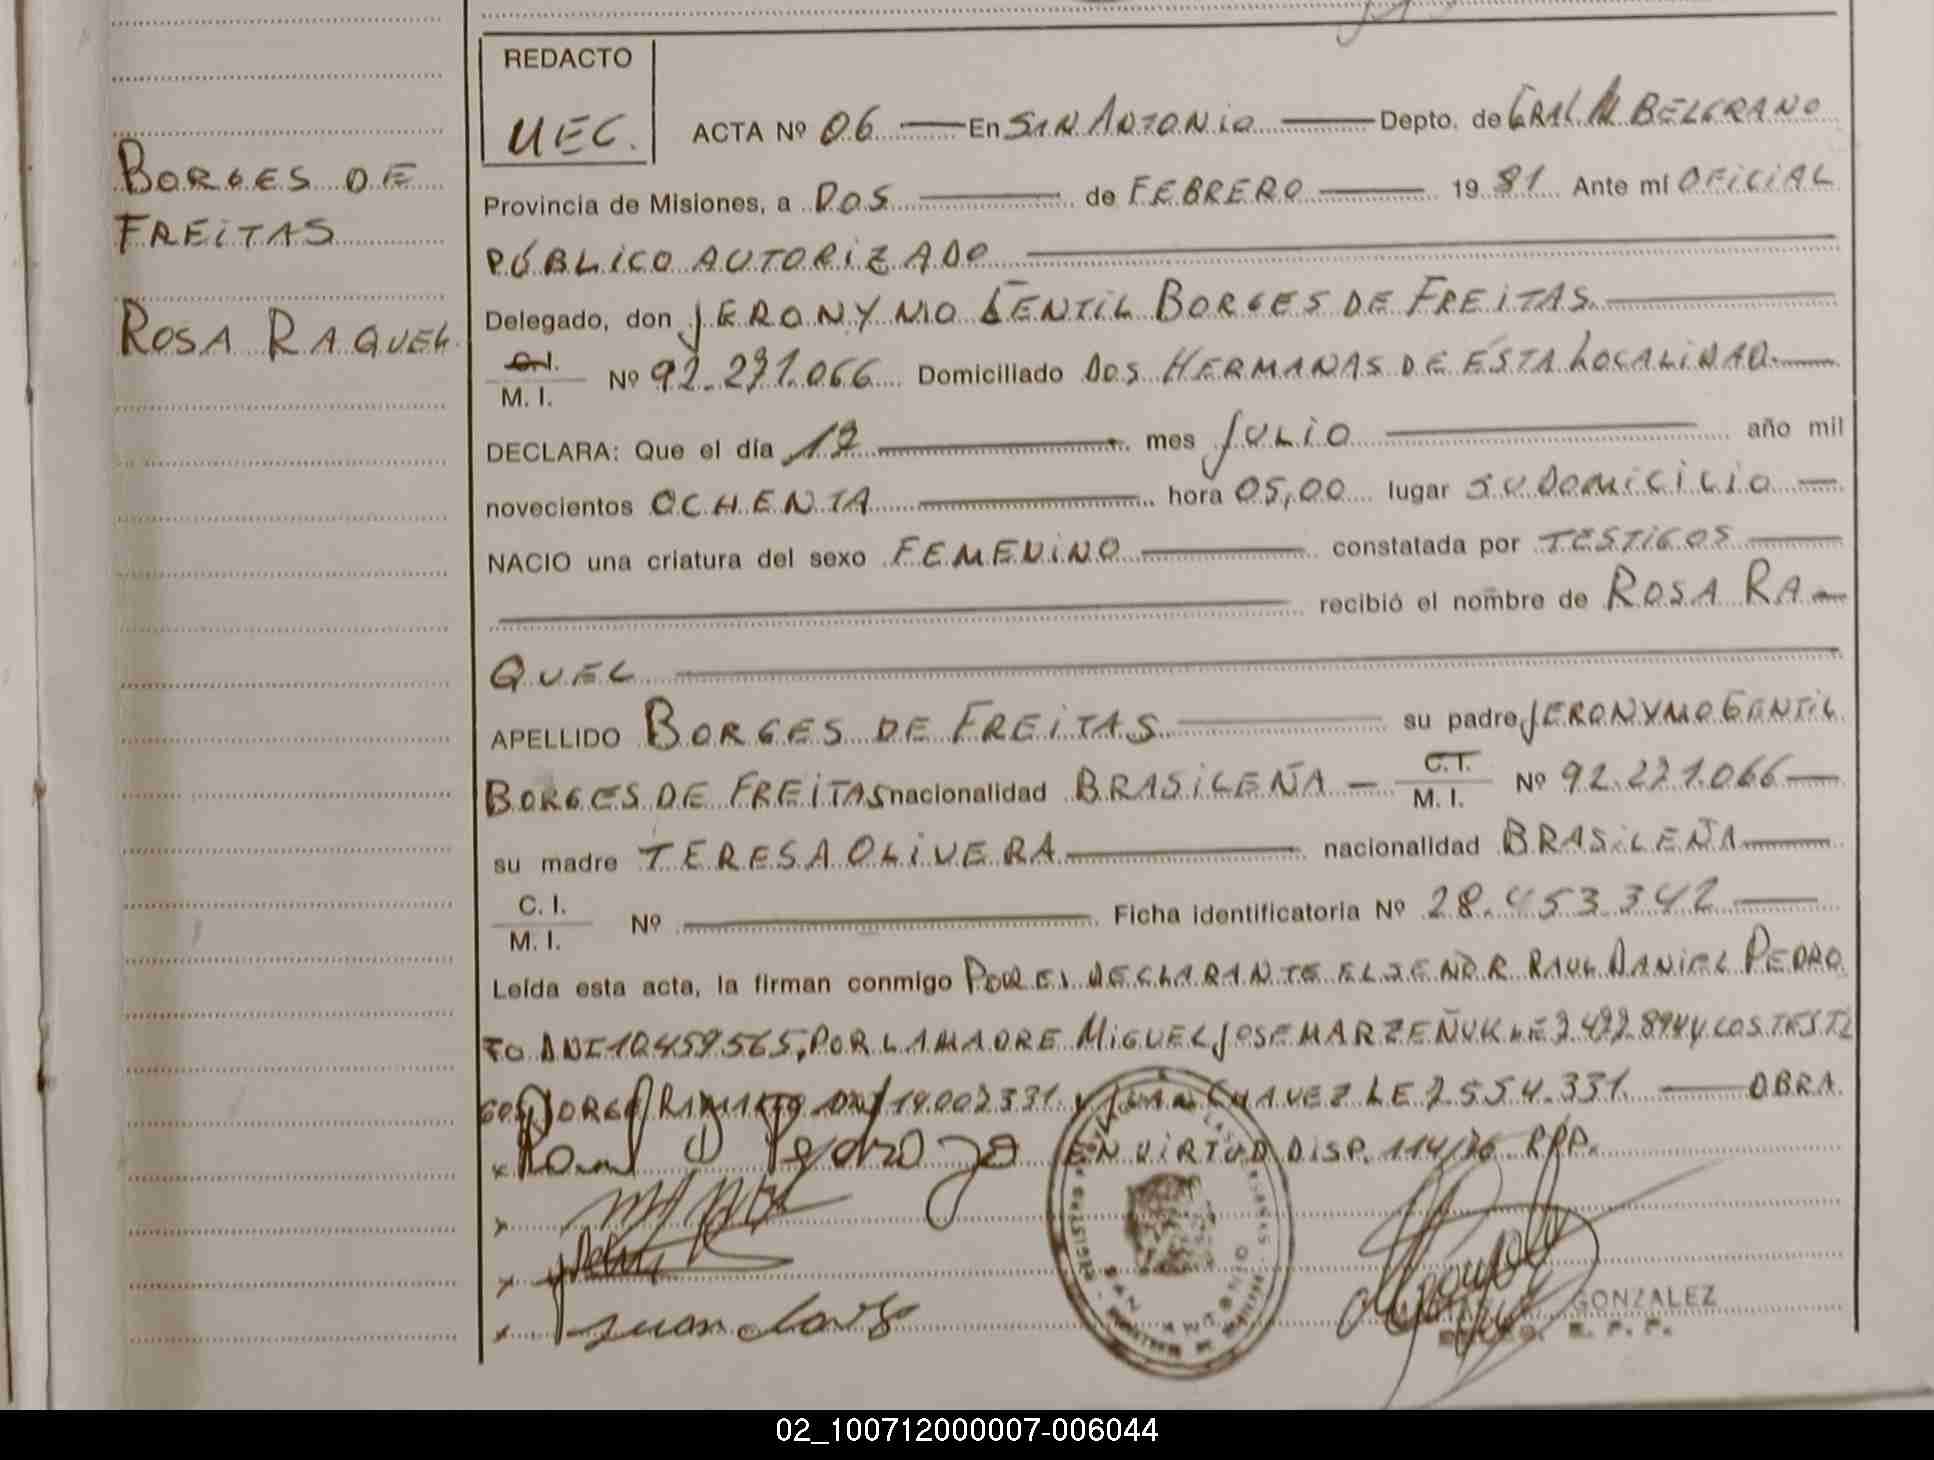 BORGES DE
FREITAS
ROSA RAQUEL
REDACTO
UEC.
ACTA Nº 06 En SAN ANTONIO Depto. de GRAL M BELGRANO
Provincia de Misiones, a DOS de FEBRERO 1981 Ante mí OFICIAL
PÚBLICO AUTORIZADO
Delegado, don JERONYMO GENTIL BORGES DE FREITAS
C.I.
M. I. Nº 92.271.066 Domiciliado DOS HERMANAS DE ESTA LOCALIDAD
DECLARA: Que el día 12 mes JULIO año mil
novecientos OCHENTA hora 05,00 lugar SU DOMICILIO
NACIO una criatura del sexo FEMENINO constatada por TESTIGOS
recibió el nombre de ROSA RA
QUEL
APELLIDO BORGES DE FREITAS su padre JERONYMO GENTIL
BORGES DE FREITAS nacionalidad BRASILEÑA C.I. M. I. Nº 92.271.066
su madre TERESA OLIVERA nacionalidad BRASILEÑA
C. I.
M. I. Nº Ficha identificatoria Nº 28.453.342
Leída esta acta, la firman conmigo POR EL DECLARANTE EL SEÑOR RAUL DANIEL PEDRO
ZO DNI 10.459.565, POR LA MADRE MIGUEL JOSE MARZEÑUK Y LOS TESTI
GOS JORGE DNI 14.002.331 Y JUAN CHAVEZ LE 7.554.331. OBRA
EN VIRTUD DISP. 114/76 RPP.
GONZALEZ
SAN ANTONIO